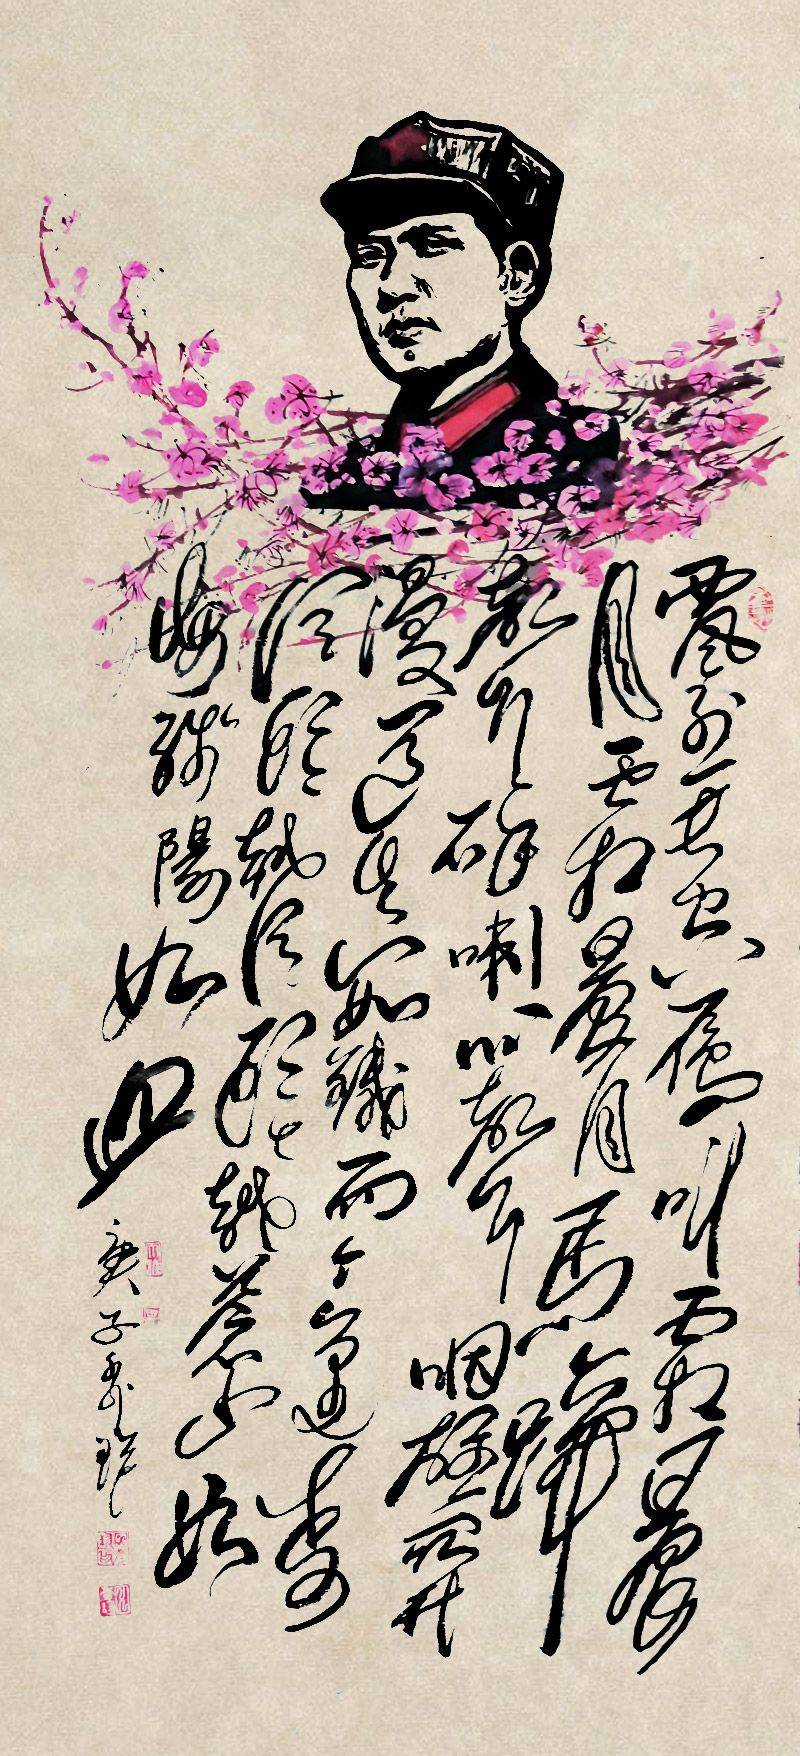 西風烈長空雁叫霜晨
月霜晨月馬蹄
聲碎喇叭聲咽雄關
漫道真如鐵而今邁步
從頭越從頭越蒼山如
海殘陽如血
庚子